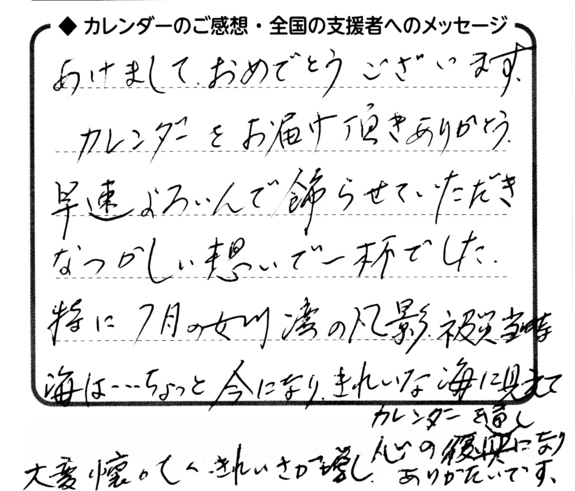 ◆ カレンダーのご感想・全国の支援者へのメッセージ
あけまして おめでとう ございます。
カレンダーを お届け頂き ありがとう。
早速 よろこんで 飾らせていただき
なつかしい 想いで一杯でした。
特に 7月の女川湾の風影 被災当時
海は…ちょっと 今になり、きれいな 海に見えて
大変 懐かしく、きれいさが増し
カレンダーを通し
心の復興になり
ありがたいです。